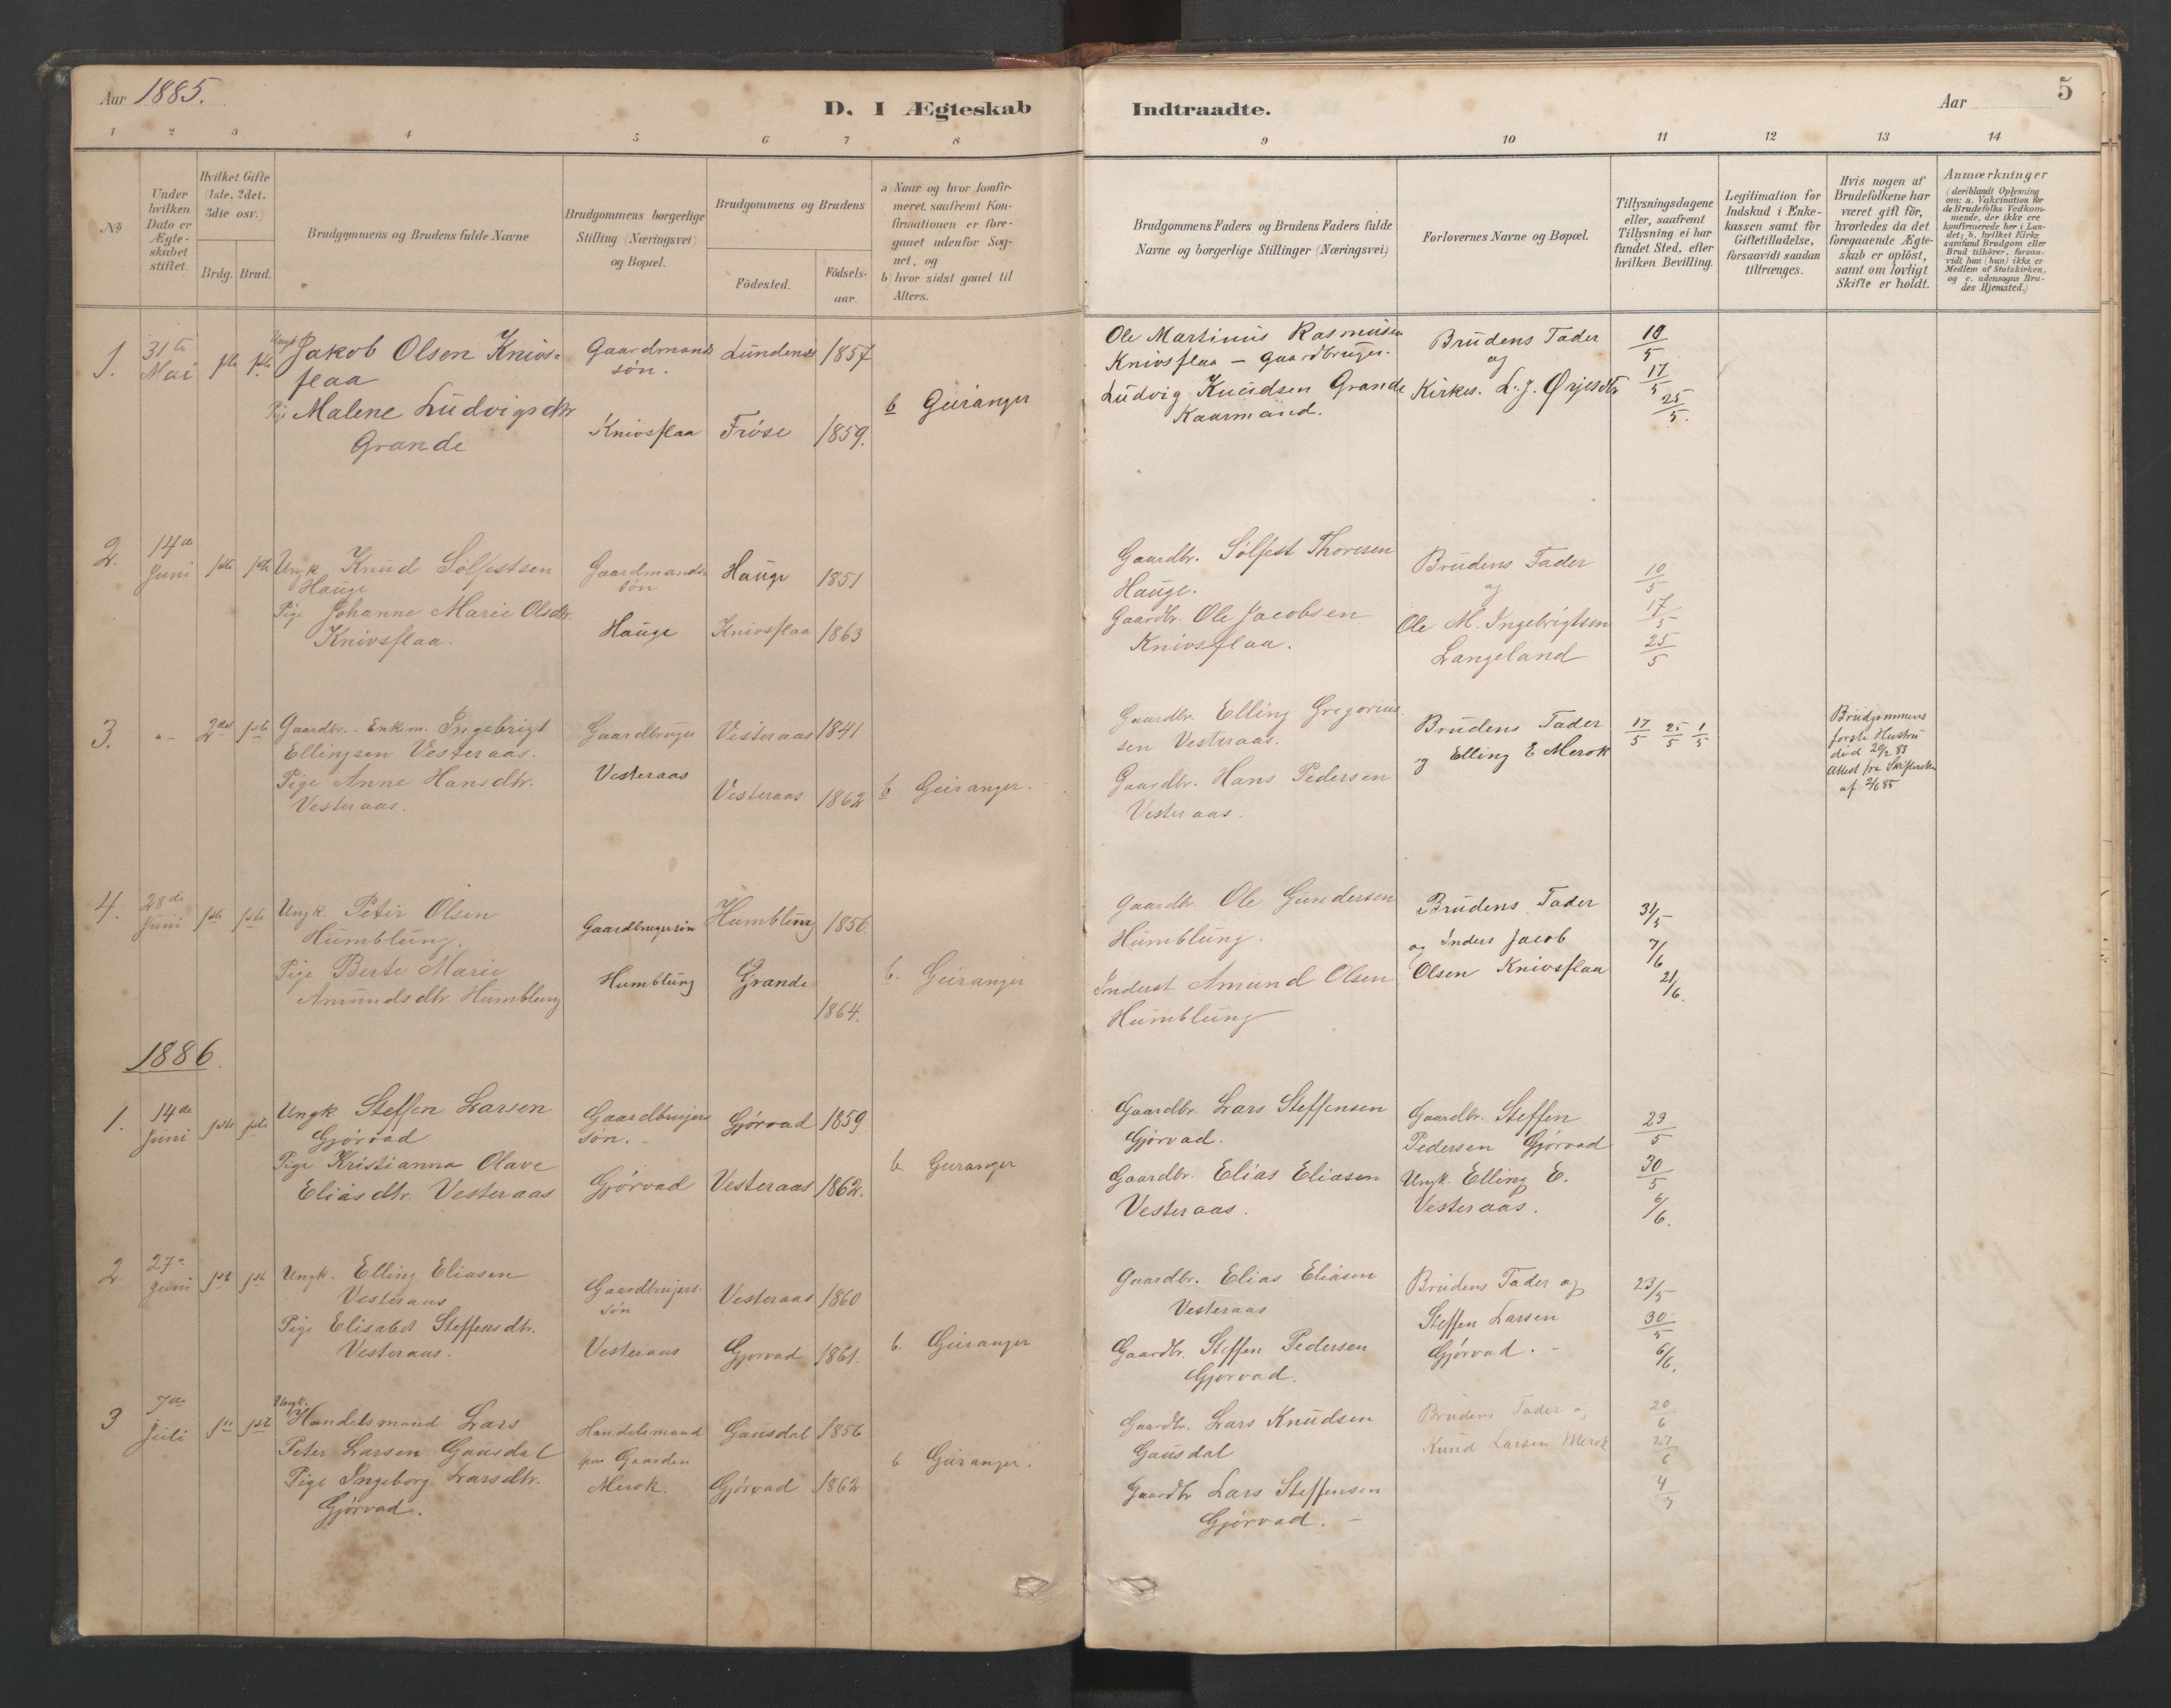 Aar 1885.
D. I Ægteskab
Indtraadte.
Aar
5
1 2 3 4 5 6 7 8 9 10 11 12 13 14
No
Under
hvilken
Dato er
Ægte-
skabet
stiftet.
Hvilket Gifte
(1ste, 2det.
3die osv.)
Brdg. Brud.
Brudgommens og Brudens fulde Navne
Brudgommens borgerlige
Stilling (Næringsvei)
og Bopæl.
Brudgommens og Brudens
Födested.
Födsels-
aar.
a) Naar og hvor konfir-
meret, saafremt Kon-
firmationen er fore-
gaaet udenfor Sog-
net, og
b) hvor sidst gaaet til
Alters.
Brudgommens Faders og Brudens Faders fulde
Navne og borgerlige Stillinger (Næringsvei)
Forlovernes Navne og Bopæl.
Tillysningsdagene
eller, saafremt
Tillysning ei har
fundet Sted, efter
hvilken Bevilling.
Legitimation for
Indskud i Enke-
kassen samt for
Giftetilladelse,
forsaavidt saadan
tiltrænges.
Hvis nogen af
Brudefolkene har
været gift för,
hvorledes da det
foregaaende Ægte-
skab er oplöst,
samt om lovligt
Skifte er holdt.
Anmærkninger
(deriblandt Oplysning
om: a. Vakcination for
de Brudefolks Vedkom-
mende, der ikke ere
konfirmerede her i Lan-
det; b. hvilket Kirke
samfund Brudgom eller
Brud tilhörer, forsaa-
vidt han (hun) ikke er
Medlem af Statskirken,
og c. udensogns Bru-
des Hjemsted.)
1. 31te Mai 1ste 1ste
Ungk. Jakob Olsen Knivs-
flaa
Pige Malene Ludvigsdtr
Grande
Gaardmands
søn.
Knivsflaa
Lundenes 1857
Frøse 1859.
b Geiranger
Ole Martinus Rasmusen
Knivsflaa — Gaardbruger.
Ludvig Knudsen Grande
Kaarmand.
Brudens Fader
og
Kirkes. L. J. Ørjesdtr
10/5
17/5
25/5.
2. 14de Juni 1ste 1ste
Ungk Knud Sølfestsen
Hauge
Pige Johanne Marie Olsdtr.
Knivsflaa.
Gaardmands
søn
Hauge
Hauge 1851
Knivsflaa 1863
Gaardbr. Sølfest Thoresen
Hauge.
Gaardbr. Ole Jacobsen
Knivsflaa.
Brudens Fader
og
Ole M. Ingebrigtsen
Langeland
10/5
17/5
25/5
3. "- 2det 1ste
Gaardbr. Enkem. Ingebrigt
Ellingsen Vesteraas.
Pige Anne Hansdtr.
Vesteraas.
Gaardbruger
Vesteraas
Vesteraas 1841
Vesteraas 1862
b Geiranger.
Gaardbr. Elling Gregorius
sen Vesteraas.
Gaardbr. Hans Pedersen
Vesteraas.
Brudens Fader
og Elling E Merok
17/5 25/5 1/5
Brudgommens
første Hustru
død 20/2 83
Attest fra Skifteretten
af 2/6 85
4. 28de Juni 1ste 1ste
Ungk. Peter Olsen
Humblung.
Pige Berte Marie
Amundsdtr. Humblung
Gaardbrugersøn
Humblung
Humblung 1856.
Grande
1864.
b. Geiranger
Gaardbr. Ole Gundersen
Humblung.
Inderst Amund Olsen
Humblung
Brudens Fader
og Inders Jacob
Olsen Knivsflaa
31/5
7/6
21/6.
1886.
1. 14de Juni 1ste 1ste
Ungk Steffen Larsen
Gjørvad
Pige Kristianna Olave
Eliasdtr. Vesteraas
Gaardbrugers
søn.-
Gjørvad
Gjørvad 1859
Vesteraas 1862.
b Geiranger
Gaardbr. Lars Steffensen
Gjørvad.
Gaardbr. Elias Eliasen
Vesteraas.
Gaardbr. Steffen
Pedersen Gjørvad
Ungk. Elling E.
Vesteraas.
23/5
30/5
6/6.
2. 27de Juni 1ste 1ste
Ungk. Elling Eliasen
Vesteraas
Pige Elisabet Steffensdtr.
Vesteraas.
Gaardbrugers-
søn
Vesteraas
Vesteraas 1860
Gjørvad 1861.
b. Geiranger
Gaardbr. Elias Eliasen
Vesteraas
Gaardbr. Steffen Pedersen
Gjørvad.
Brudens Fader og
Steffen Larsen
Gjørvad.-
23/5
30/5
6/6.
3 7de Juli 1ste 1ste
Ungk.
Handelsmand Lars
Peter Larsen Gausdal
Pige Ingeborg Larsdtr.
Gjørvad.
Handelsmand
paa Gaarden
Merok.
Gausdal 1856
Gjørvad 1862
b Geiranger.
Gaardbr. Lars Knudsen
Gausdal
Gaardbr Lars Steffensen
Gjørvad.-
Brudens Fader og
Knud Larsen Merok
20/6
27/6
4/7